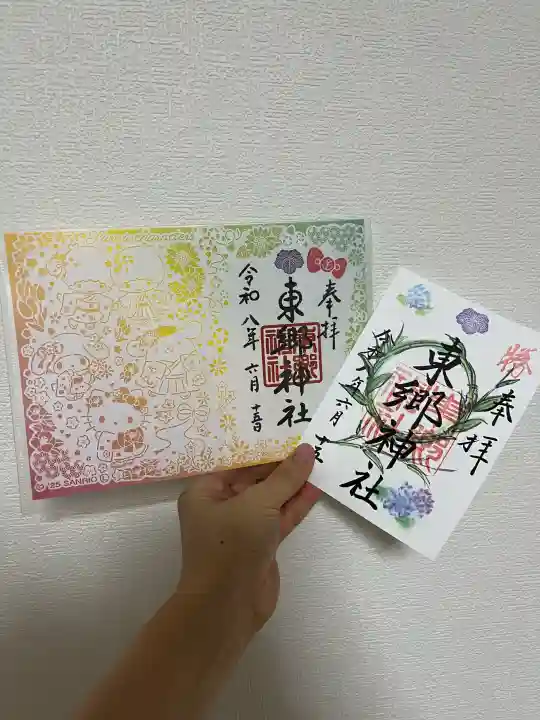 奉拝
東郷神社
令和八年六月十五日
©'25 SANRIO Ⓛ
勝
奉拝
東郷神社
令和八年六月十五